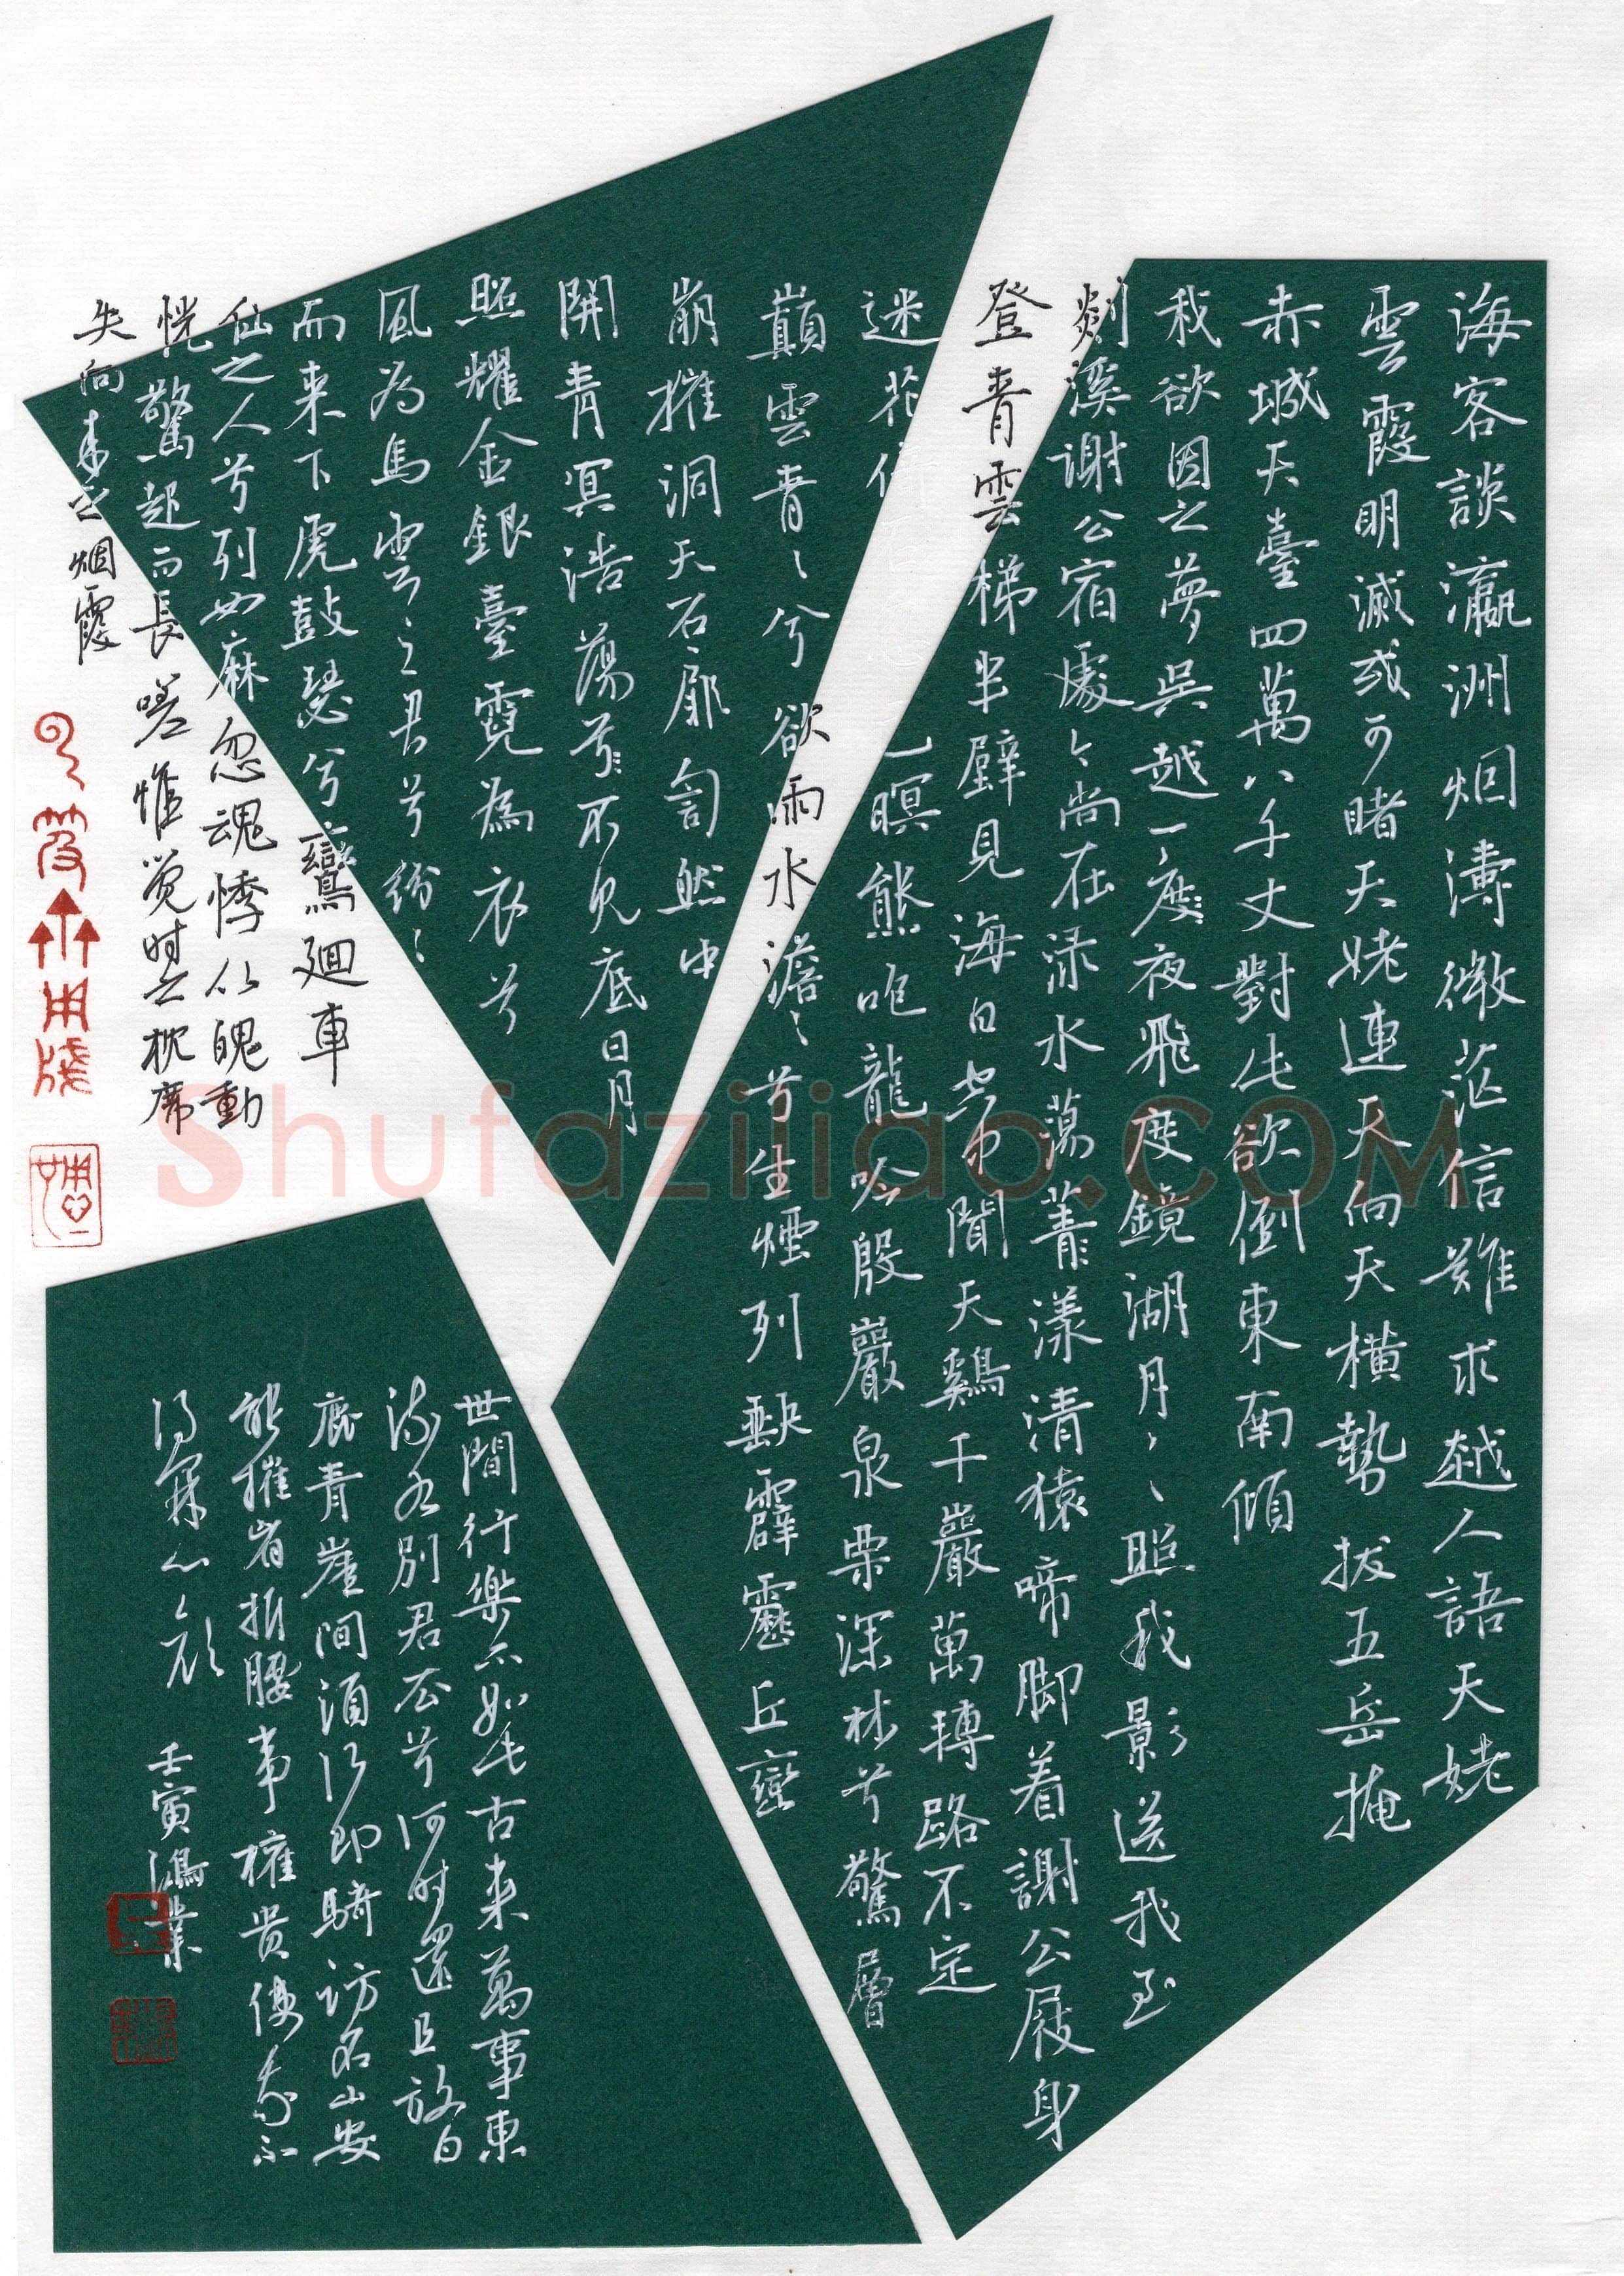 海客談瀛洲烟濤微茫信難求越人語天姥
雲霞明滅或可睹天姥連天向天橫勢拔五岳掩
赤城天臺四萬八千丈對此欲倒東南傾
我欲因之夢吳越一度夜飛度鏡湖月〻照我影〻送我至
剡溪謝公宿處〻尚在渌水蕩蕩漾清猿啼脚着謝公屐身
登青雲梯半壁見海日空中聞天鷄千巖萬轉路不定
迷花倚 暝熊咆龍吟殷巖泉栗深林兮驚層
巔雲青〻兮欲雨水澹〻兮生煙列缺霹靂丘巒
崩摧洞天石扉訇然中
開青冥浩蕩兮不見底日月
照耀金銀臺霓為衣兮
風為馬雲〻之君兮紛〻
而来下虎鼓瑟兮 鸞廻車
仙之人兮列如麻忽魂悸以魄動
恍驚起而長嗟惟覺時之枕席
失向來之烟霞
世間行樂亦如此古來萬事東
流水別君去兮何時還且放白
鹿青崖間須行即騎訪名山安
能摧眉折腰事權贵使我不
得開心顏 壬寅鴻業
Shufaziliao.COM